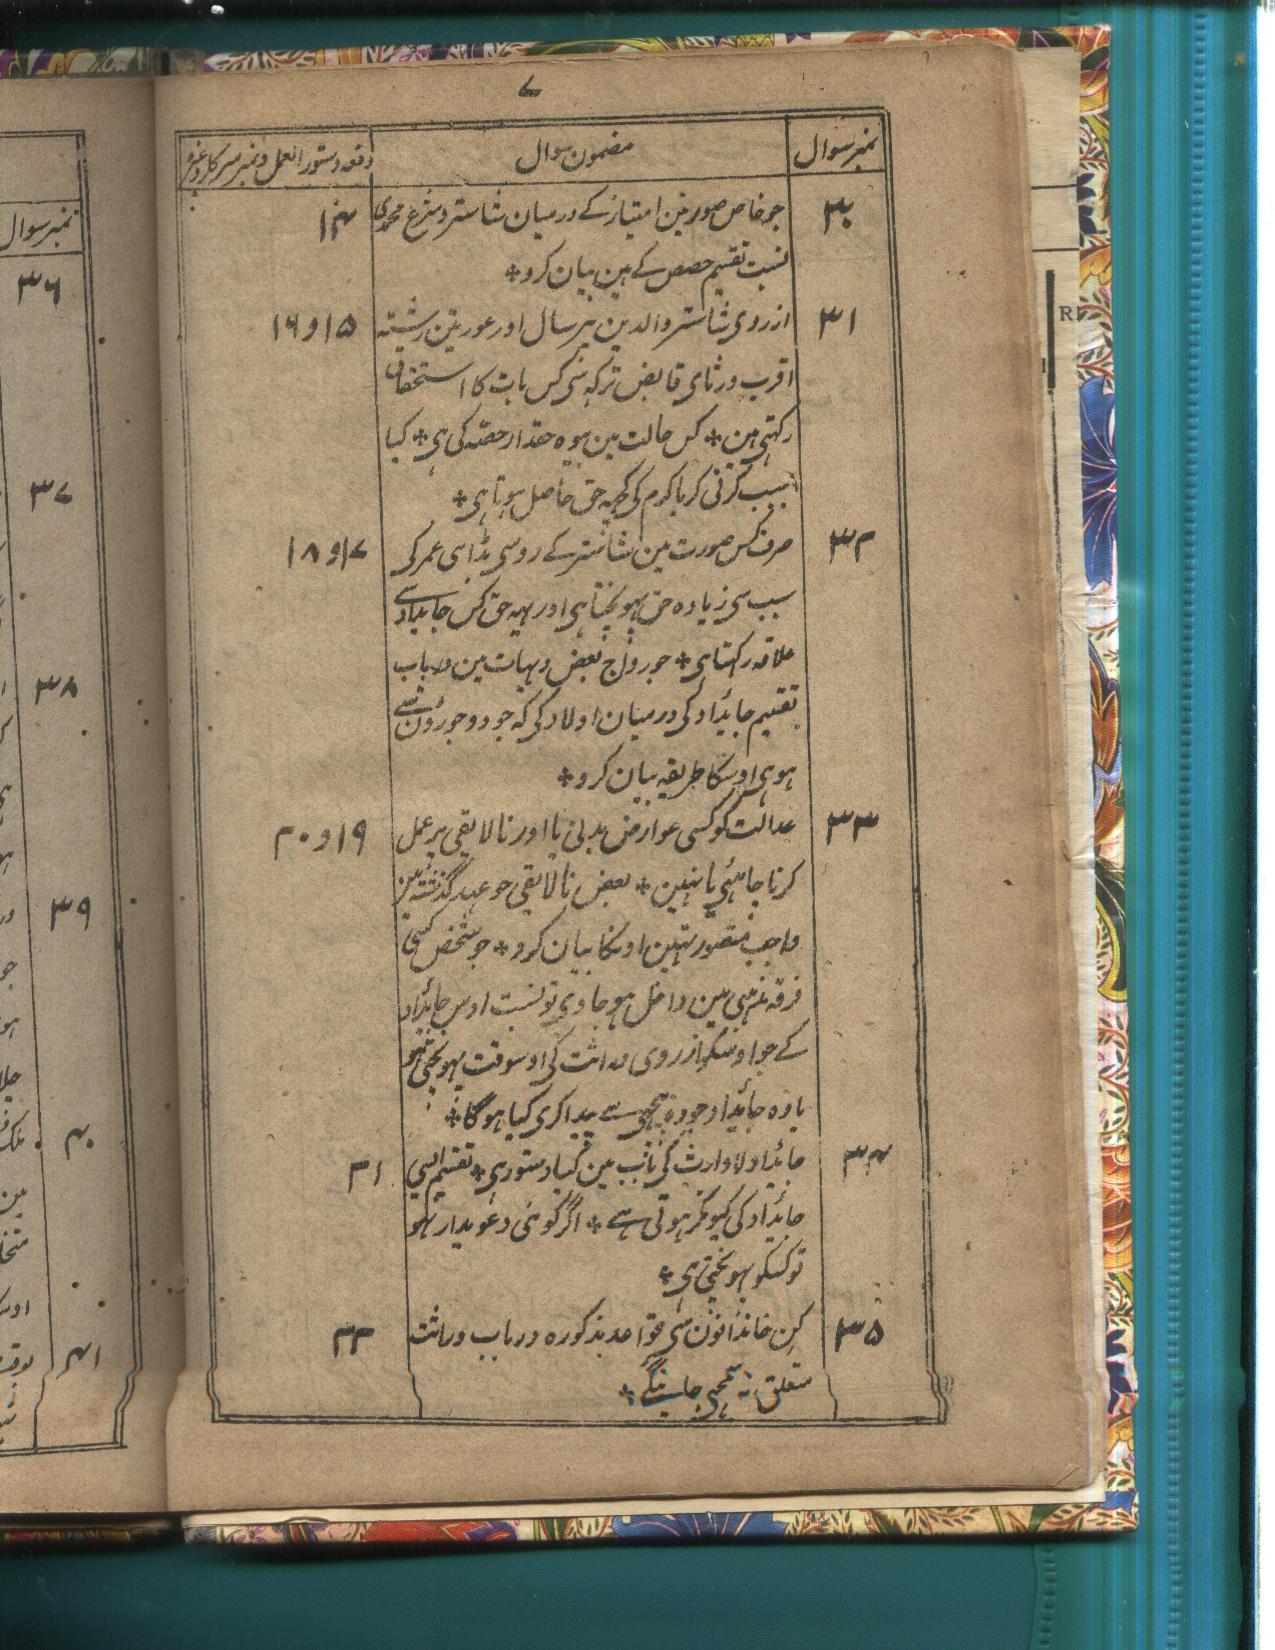 ۷
نمبر سوال مضمون سوال دفعہ دستور العمل و نمبر سرکلر وغیرہ
۳۰ جو خاص صورتین امتیاز کے درمیان شاستر و شرع محمدی ۱۴
نسبت تقسیم حصص کے ہین بیان کرو *
۳۱ ازروی شاستر والدین پیر سال اور عورتین رشتہ ۱۵ و ۱۶
اقرب ورثای قابض ترکہ سی کس بات کا استحقاق
رکہتی ہین * کس حالت مین بیوہ حقدار حصّہ کی ہی * کیا
بسبب کرنی کریا کرم کی کچہہ حق حاصل ہوتا ہی *
۳۲ صرف کس صورت مین شاستر کے روسی بڑائی عمر کی ۱۷ و ۱۸
سبب سی زیادہ حق پہونچتا ہی اور یہہ حق کس جایداد سے
علاقہ رکہتا ہی * جو رواج بعض دیہات مین در باب
تقسیم جائیداد کی درمیان اولاد کی کہ جو دو جورؤن سے
ہوی اوسکا طریقہ بیان کرو *
۳۳ عدالت کو کسی عوارض بدنی یا اور نالایقی پر عمل ۱۹ و ۲۰
کرنا چاہئی یا نہین * بعض نالایقی جو عہد گذشتہ مین
واجب متصور تہین اونکا بیان کرو * جو شخص کسی
فرقہ مذہبی مین داخل ہو جاوی تو نسبت اوس جائیداد
کے جو اوسکو ازروی وراثت کی اوسوقت پہونچی ہو
یا وہ جائیداد جو سے پیدا کری کیا ہوگا *
۳۴ جائیداد لاوارث کی باب مین کیا دستور ہی * تقسیم ایسی ۲۱
جائیداد کی کیونکر ہوتی ہے * اگر کوئی دعویدار نہو
تو کسکو پہونچتی ہی *
۳۵ کن خاندانون سی قواعد مذکورہ در باب وراثت ۲۲
متعلق نہ سمجہی جاینگے *
نمبر سوال
۳۶
۳۷
۳۸
۳۹
۴۰
۴۱